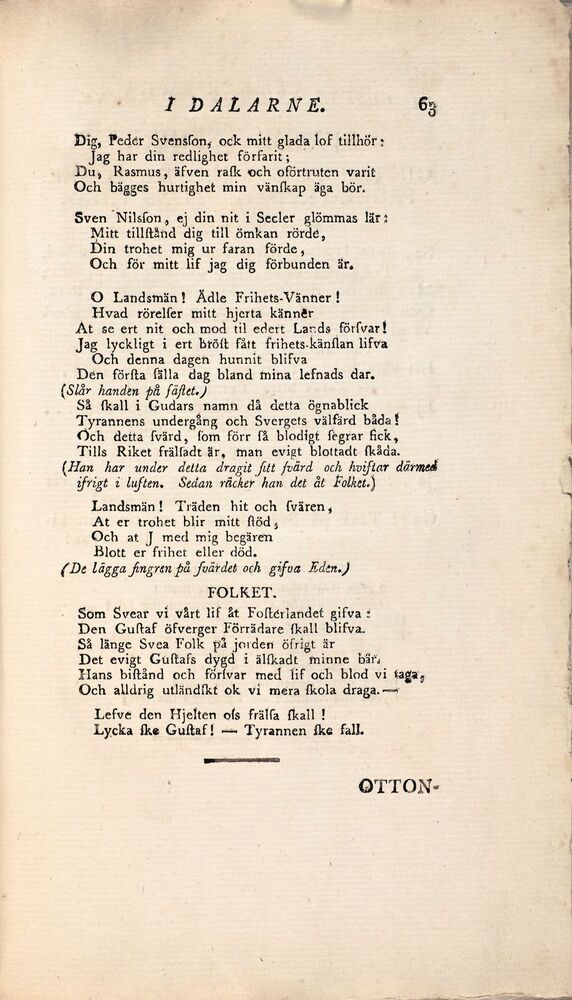 I DALARNE. 63
Dig, Peder Svensſon, ock mitt glada lof tillhör:
Jag har din redlighet förfarit;
Du, Rasmus, äfven raſk och oförtruten varit
Och bägges hurtighet min vänſkap äga bör.
Sven Nilsſon, ej din nit i Secler glömmas lär:
Mitt tillſtånd dig till ömkan rörde,
Din trohet mig ur faran förde,
Och för mitt lif jag dig förbunden är.
O Landsmän! Ädle Frihets-Vänner!
Hvad rörelſer mitt hjerta känner
At se ert nit och mod til edert Lands förſvar!
Jag lyckligt i ert bröſt fått frihets-känſlan lifva
Och denna dagen hunnit blifva
Den förſta ſälla dag bland mina lefnads dar.
(Slår handen på fäſtet.)
Så ſkall i Gudars namn då detta ögnablick
Tyrannens undergång och Sverges välfärd båda!
Och detta ſvärd, ſom förr ſå blodigt ſegrar fick,
Tills Riket frälſadt är, man evigt blottadt ſkåda.
(Han har under detta dragit ſitt ſvärd och hviſtar därmed
ifrigt i luften. Sedan räcker han det åt Folket.)
Landsmän! Träden hit och ſvären,
At er trohet blir mitt ſtöd,
Och at J med mig begären
Blott er frihet eller död.
(De lägga fingren på ſvärdet och gifva Eden.)
FOLKET.
Som Svear vi vårt lif åt Foſterlandet gifva:
Den Guſtaf öfverger Förrädare ſkall blifva.
Så länge Svea Folk på jorden öfrigt är
Det evigt Guſtafs dygd i älſkadt minne bär.
Hans biſtånd och förſvar med lif och blod vi taga,
Och alldrig utländſkt ok vi mera ſkola draga.—
Lefve den Hjelten oſs frälſa ſkall!
Lycka ſke Guſtaf! — Tyrannen ſke fall.
OTTON-